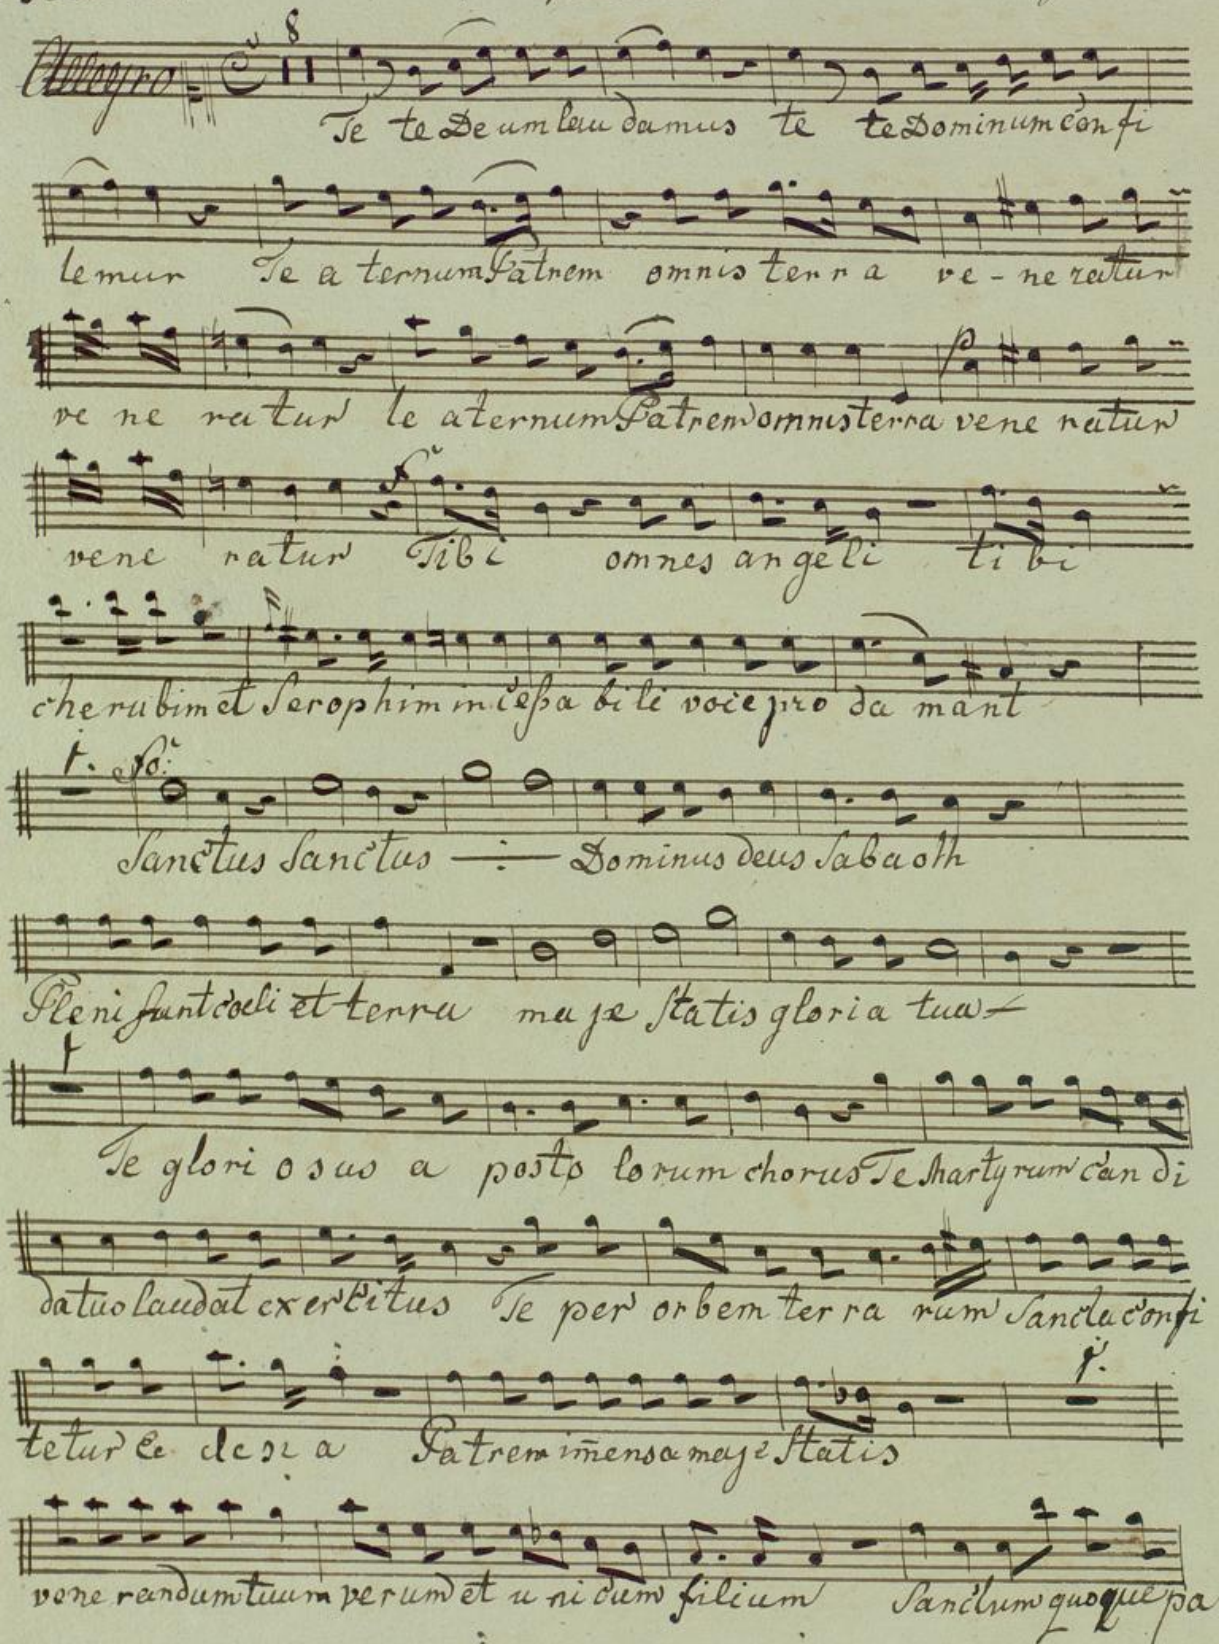 Allegro 8
Te te Deum lau damus te te Dominum con fi
temur Te a ternum Patrem omnis terra ve - ne ratur
ve ne ratur Te aternum Patrem omnis terra vene ratur
p
vene ratur Tibi omnes angeli ti bi
f
cherubim et Serophim inceßa bili voce pro cla mant
1. fo:
Sanctus Sanctus —:— Dominus deus Sabaoth
Pleni sunt coeli et terra ma je statis gloria tua
1
Te glori osus a posto lorum chorus Te Martyrum can di
datus laudat exercitus Te per orbem terra rum Sancta confi
1.
tetur Ec clesi a Patrem im̄ensa maje statis
vene randum tuum verum et u nicum filium Sanctum quoque pa